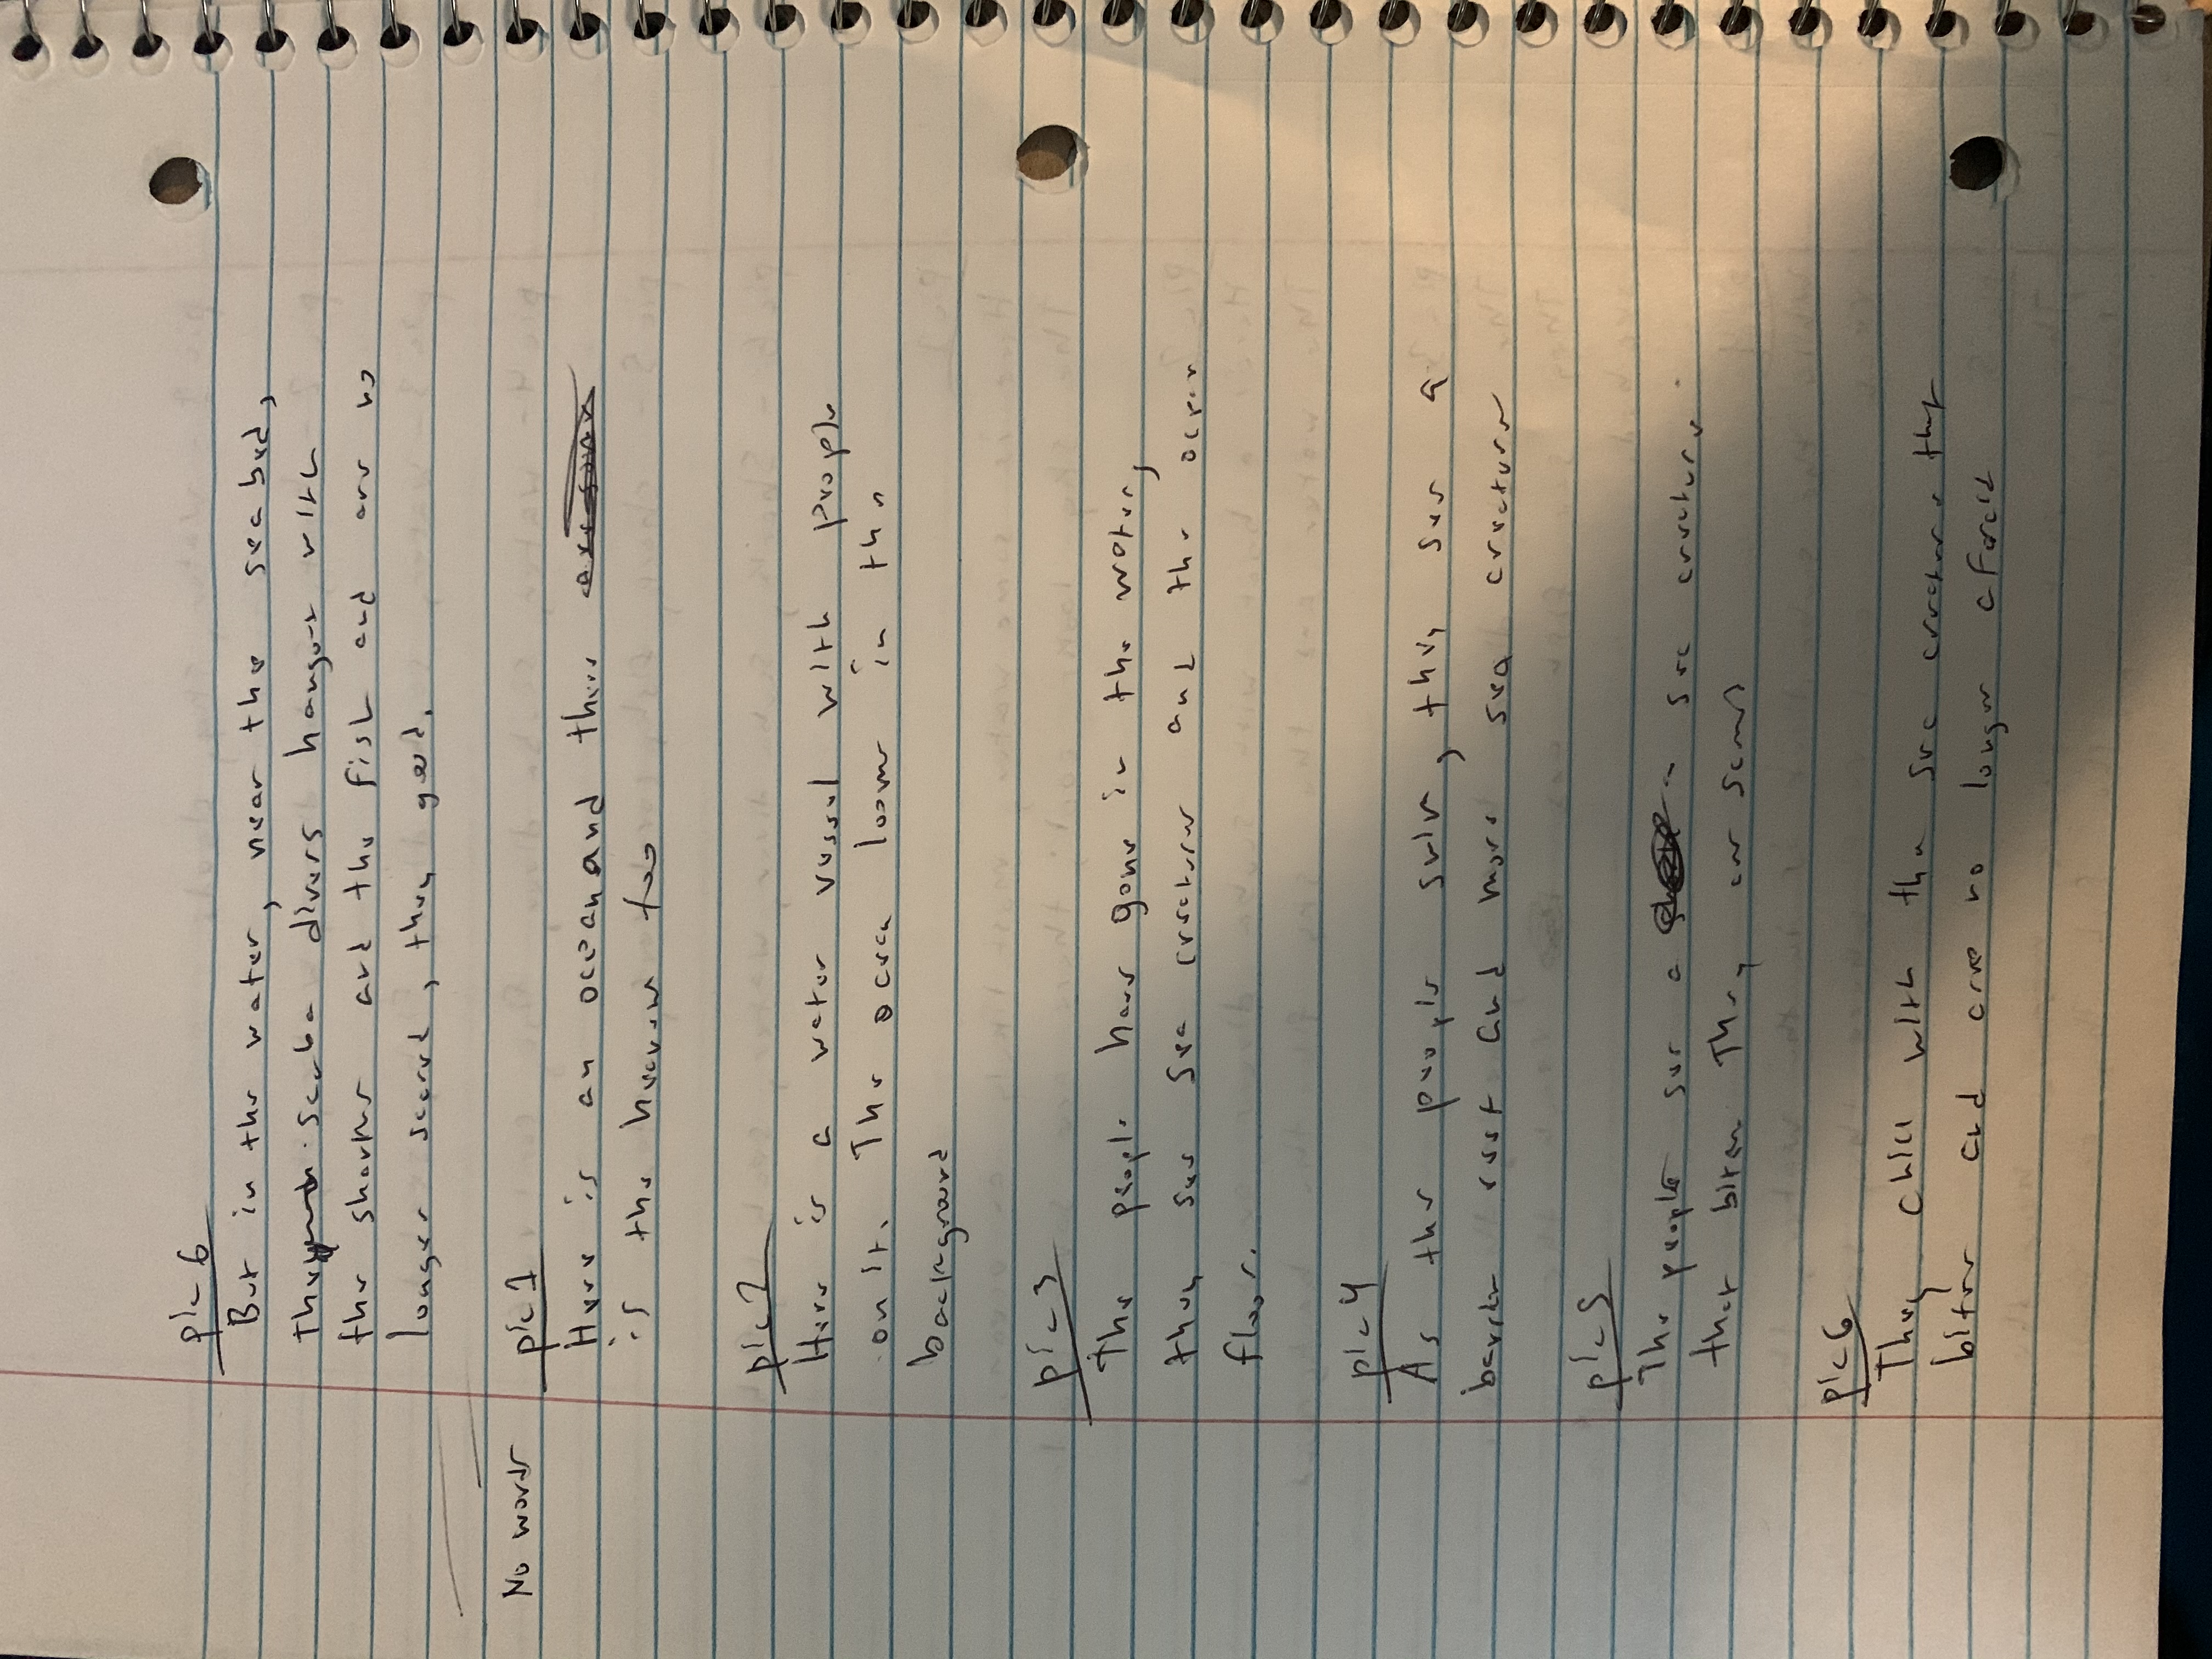 pic 6
But in the water, near the sea bed,
The scuba divers hangout with
the sharks and the fish and are no
longer scared, they good.
No words
pic 1
Here is an ocean and there
is the heaven too
pic 2
Here is a water vessel with people
on it. The ocean looms in the
background
pic 3
The people have gone in the water,
they see sea creatures and the ocean
floor.
pic 4
As the people swim, they see a
barrier reef and more sea creatures
pic 5
The people see a sea creature
that bites. They are scared
pic 6
They chill with the sea creatures that
bites and are no longer aforaid